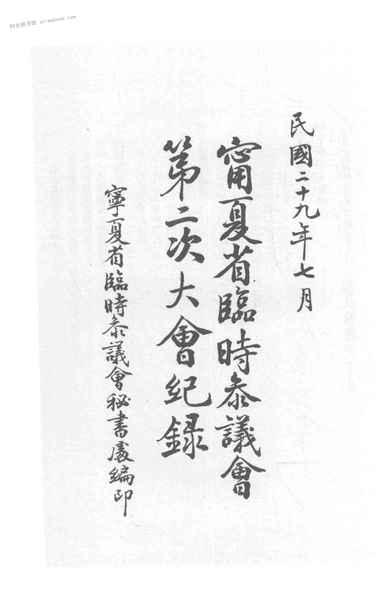 民國二十九年七月
甯夏省臨時參議會
第二次大會紀録
寧夏省臨時參議會秘書處編印